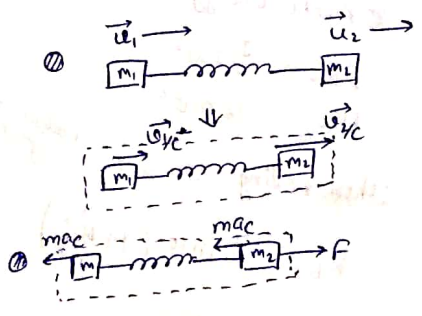 u⃗₁ u⃗₂
m₁ m₂
v⃗₁/c v⃗₂/c
m₁ m₂
mac mac
m m₂ F